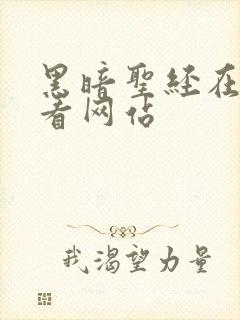 黑暗聖経在
看网站
我渴望力量